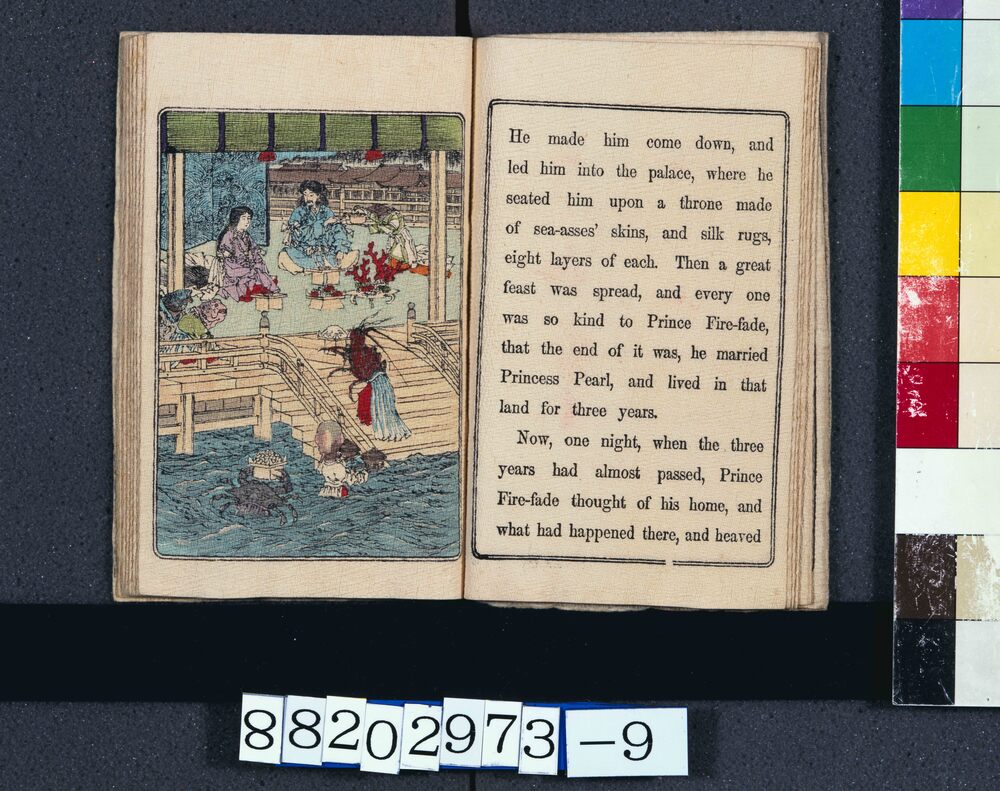 He made him come down, and
led him into the palace, where he
seated him upon a throne made
of sea-asses' skins, and silk rugs,
eight layers of each. Then a great
feast was spread, and every one
was so kind to Prince Fire-fade,
that the end of it was, he married
Princess Pearl, and lived in that
land for three years.
Now, one night, when the three
years had almost passed, Prince
Fire-fade thought of his home, and
what had happened there, and heaved
88202973-9